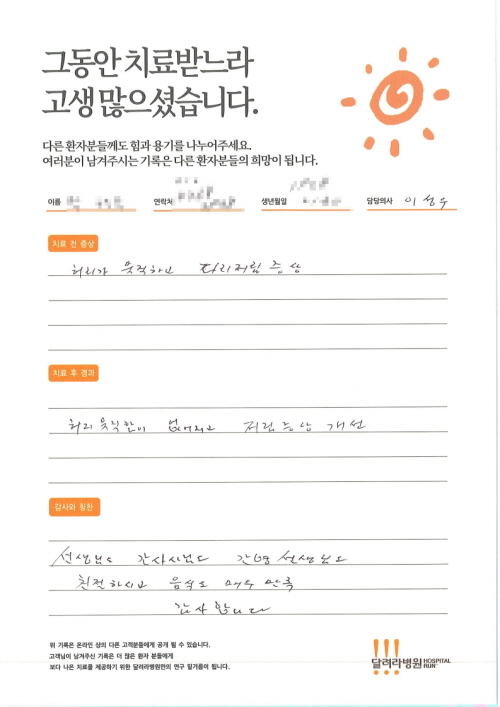 그동안 치료받느라
고생 많으셨습니다.
다른 환자분들께도 힘과 용기를 나누어주세요.
여러분이 남겨주시는 기록은 다른 환자분들의 희망이 됩니다.
이름 연락처 생년월일 담당의사 이성우
치료 전 증상
허리가 욱적하고 다리저림 증상
치료 후 경과
허리 욱직함이 없어지고 저림증상 개선
감사와 칭찬
선생님도 간사시님도 간병 선생님도
친절하시고 음식도 매우 만족
감사 합니다
위 기록은 온라인 상의 다른 고객분들에게 공개 될 수 있습니다.
고객님이 남겨주신 기록은 더 많은 환자 분들에게
보다 나은 치료를 제공하기 위한 달려라병원만의 연구 밑거름이 됩니다.
달려라병원 HOSPITAL RUN